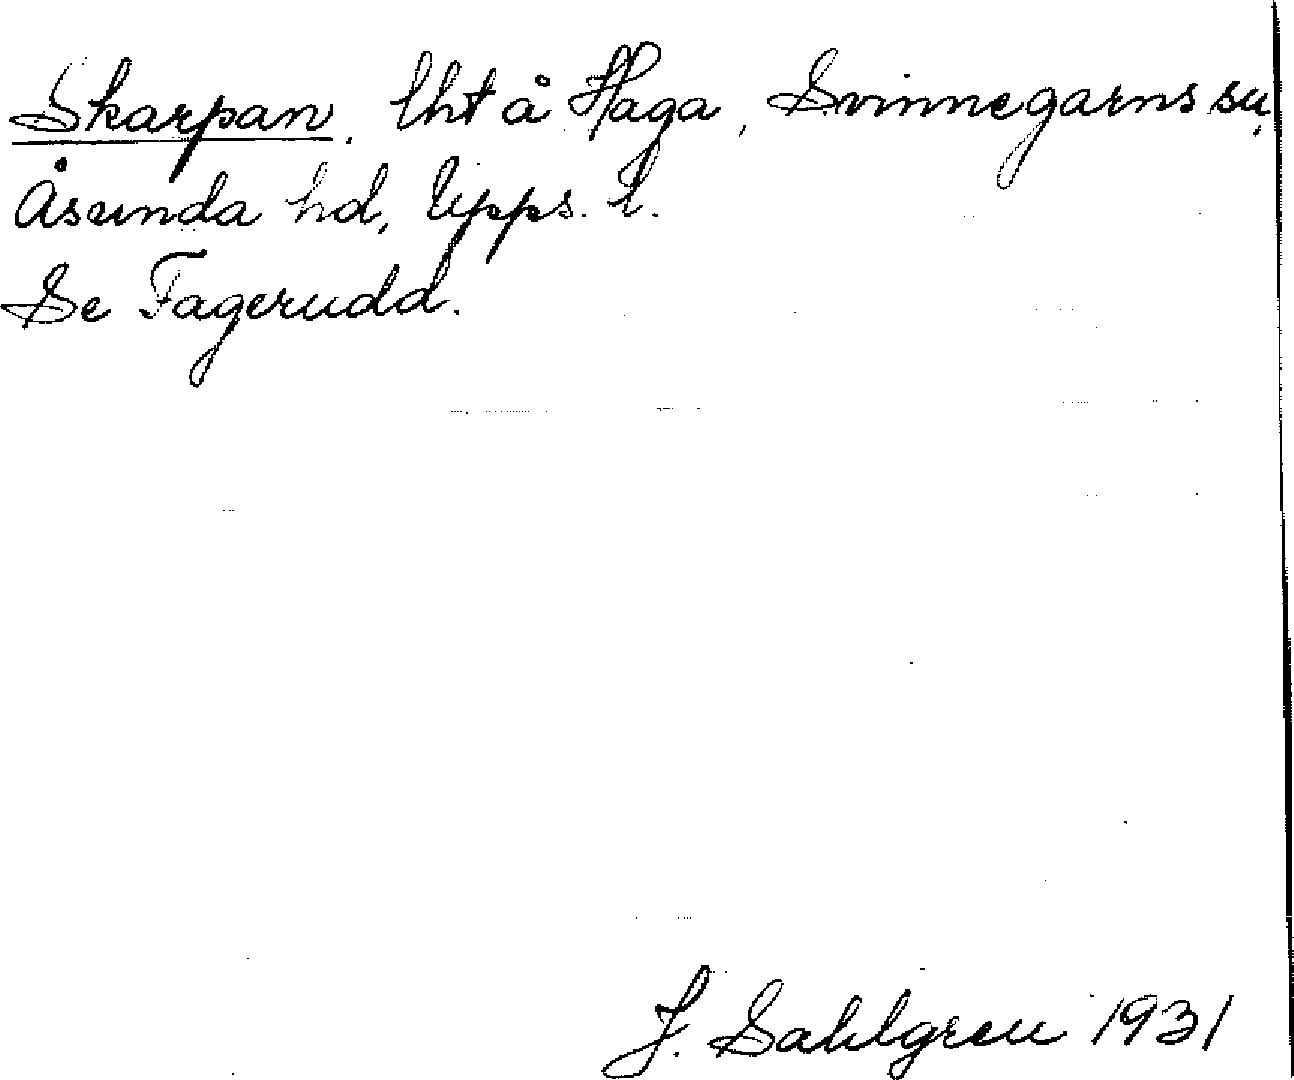 Skarpan. lht å Haga, Svinnegarns sn,
Åsunda hd, Upps. l.
Se Fagerudd.
J. Sahlgren 1931